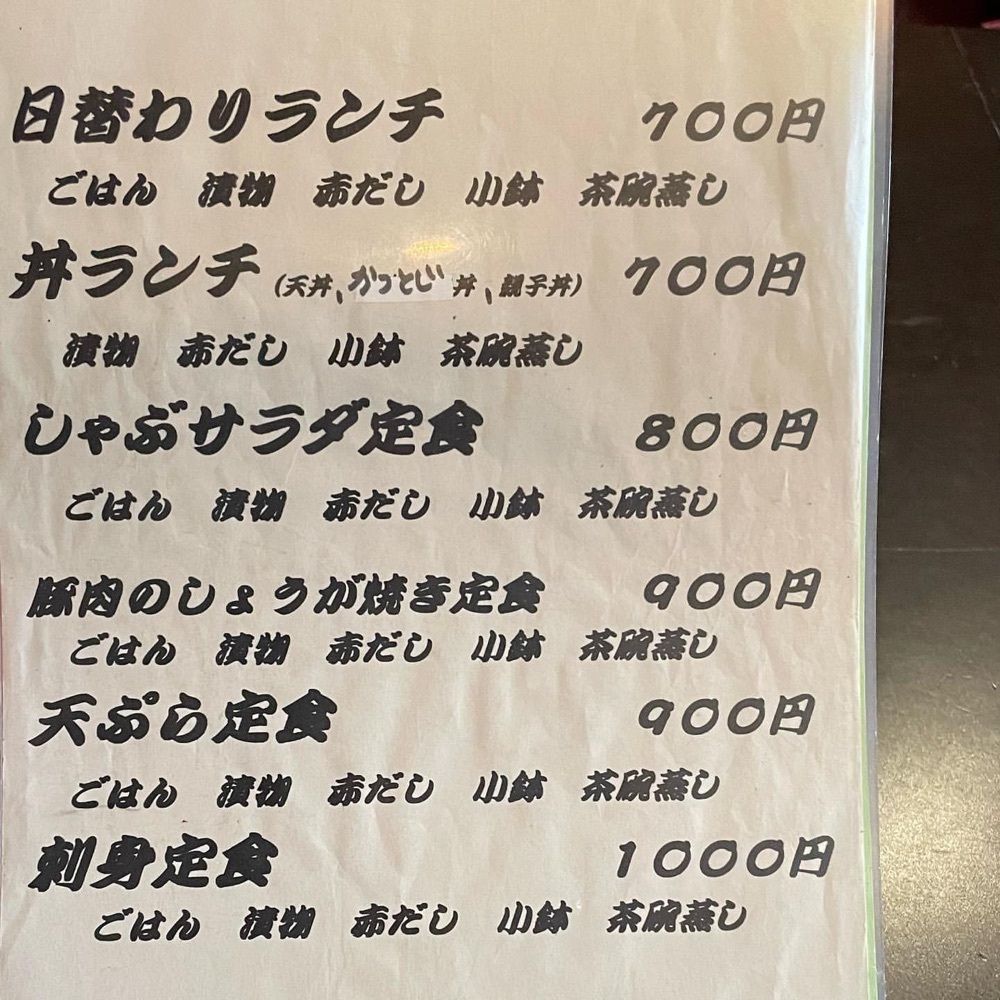 日替わりランチ 700円
ごはん 漬物 赤だし 小鉢 茶碗蒸し
丼ランチ (天丼、かつとじ丼、親子丼) 700円
漬物 赤だし 小鉢 茶碗蒸し
しゃぶサラダ定食 800円
ごはん 漬物 赤だし 小鉢 茶碗蒸し
豚肉のしょうが焼き定食 900円
ごはん 漬物 赤だし 小鉢 茶碗蒸し
天ぷら定食 900円
ごはん 漬物 赤だし 小鉢 茶碗蒸し
刺身定食 1000円
ごはん 漬物 赤だし 小鉢 茶碗蒸し